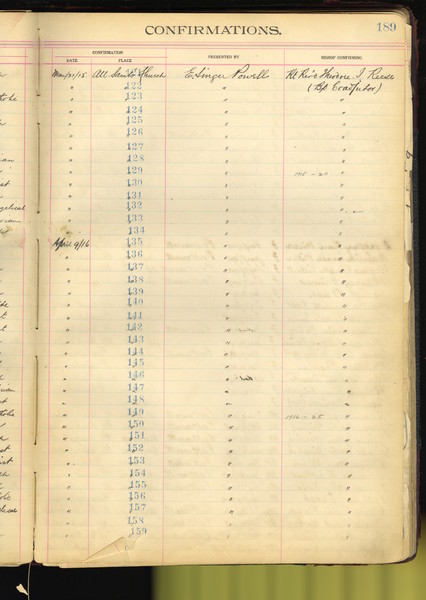 189
CONFIRMATIONS.
CONFIRMATION
DATE PLACE PRESENTED BY BISHOP CONFIRMING
Mar/21/15 All Saints Church E. Singer Powell Rt Rev Theodore I. Reese
" 122 " (Bp Coadjutor)
" 123 " "
" 124 " "
" 125 " "
" 126 " "
" 127 " "
" 128 " "
" 129 " "
" 130 " "
" 131 " "
" 132 " "
" 133 " "
" 134 " "
April 9/16 135 " "
" 136 " "
" 137 " "
" 138 " "
" 139 " "
" 140 " "
" 141 " "
" 142 " "
" 143 " "
" 144 " "
" 145 " "
" 146 " "
" 147 " "
" 148 " "
" 149 " 1916 - 25 "
" 150 " "
" 151 " "
" 152 " "
" 153 " "
" 154 " "
" 155 " "
" 156 " "
" 157 " "
" 158 " "
" 159 " "